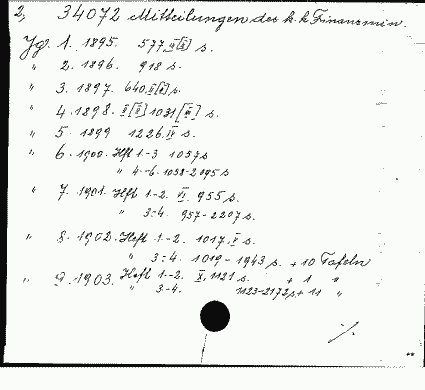 2, 34072 Mitteilungen des k. k. Finanzmin.
Jg. 1. 1895. 577 s.
" 2. 1896. 918 s.
" 3. 1897. 640. s.
" 4. 1898. II [II] 1031 s.
" 5. 1899 1226. IV s.
" 6. 1900. Heft 1-3 1057 s
" 4-6. 1058-2095 s
" 7. 1901. Heft 1-2. VI. 955 s.
" 3-4. 957-2207 s.
" 8. 1902. Heft 1-2. 1017. V s.
" 3-4. 1019-1943 s. + 10 Tafeln
" 9. 1903. Heft 1-2. X, 1121 s. + 1 "
" 3-4. 1123-2172 s + 11 "